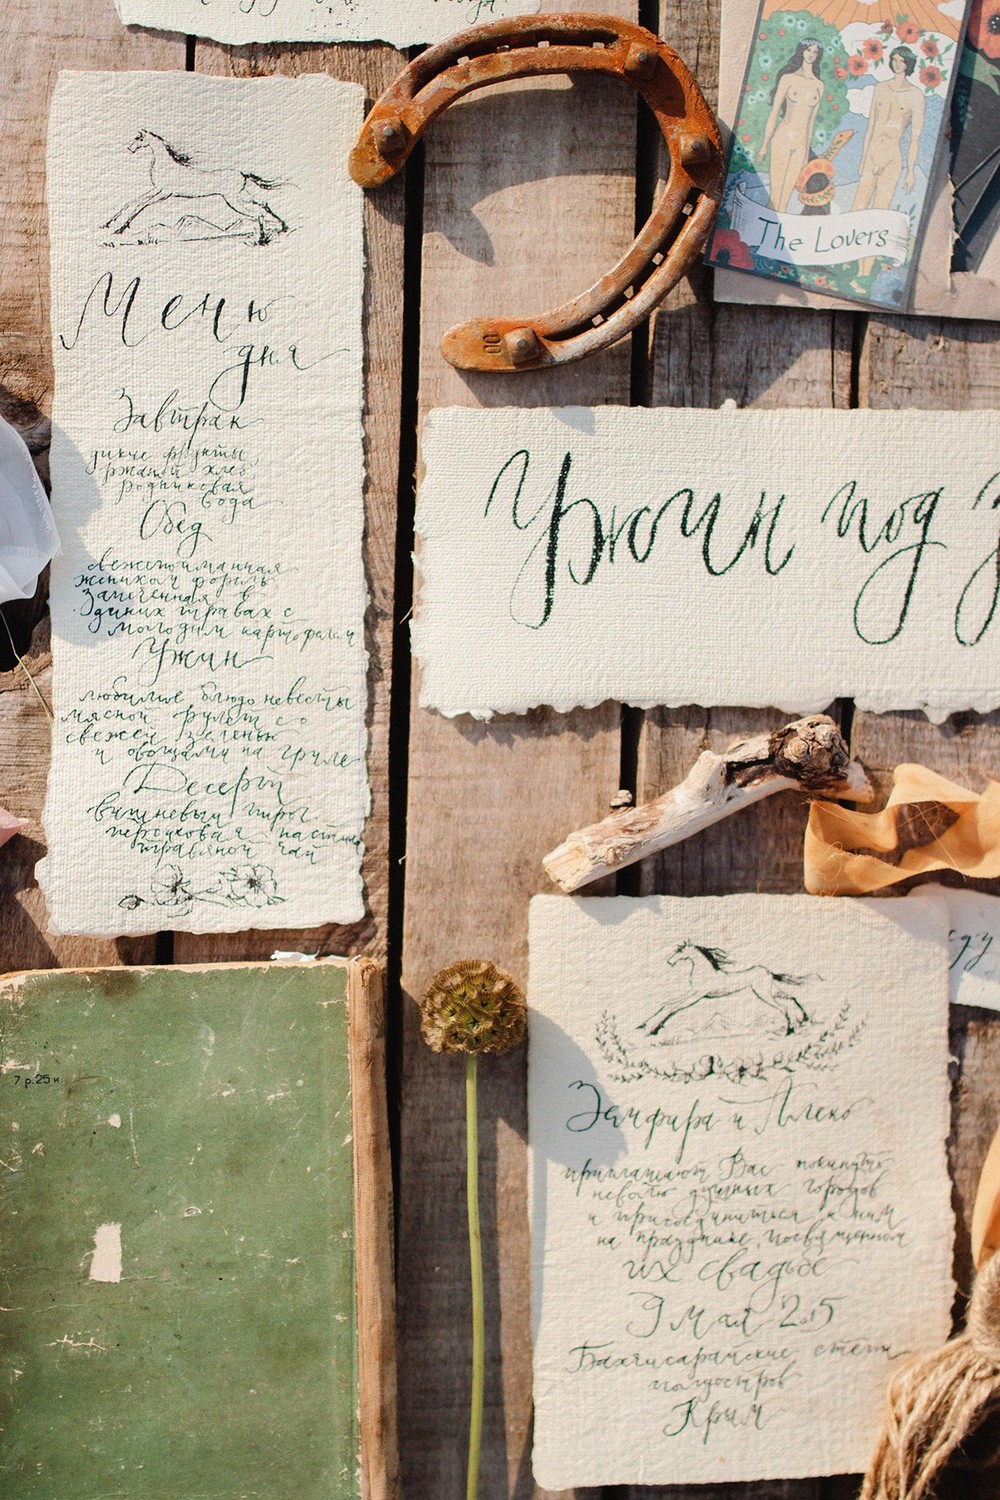 Меню
дня
Завтрак
дикие фрукты,
ржаной хлеб
родниковая
вода
Обед
свежепойманная
женихом форель
запеченная в
диких травах с
молодым картофелем
Ужин
любимое блюдо невесты
мясной рулет со
свежей зеленью
и овощами на гриле
Десерт
вишневый пирог
персиковая пастила
травяной чай
The Lovers
Ужин под
Земфира и Алеко
приглашают Вас покинуть
неволю душных городов
и присоединиться к ним
на празднике, посвященном
их свадьбе
9 мая 2015
Бахчисарайские степи
полуостров
Крым
7 р. 25 к